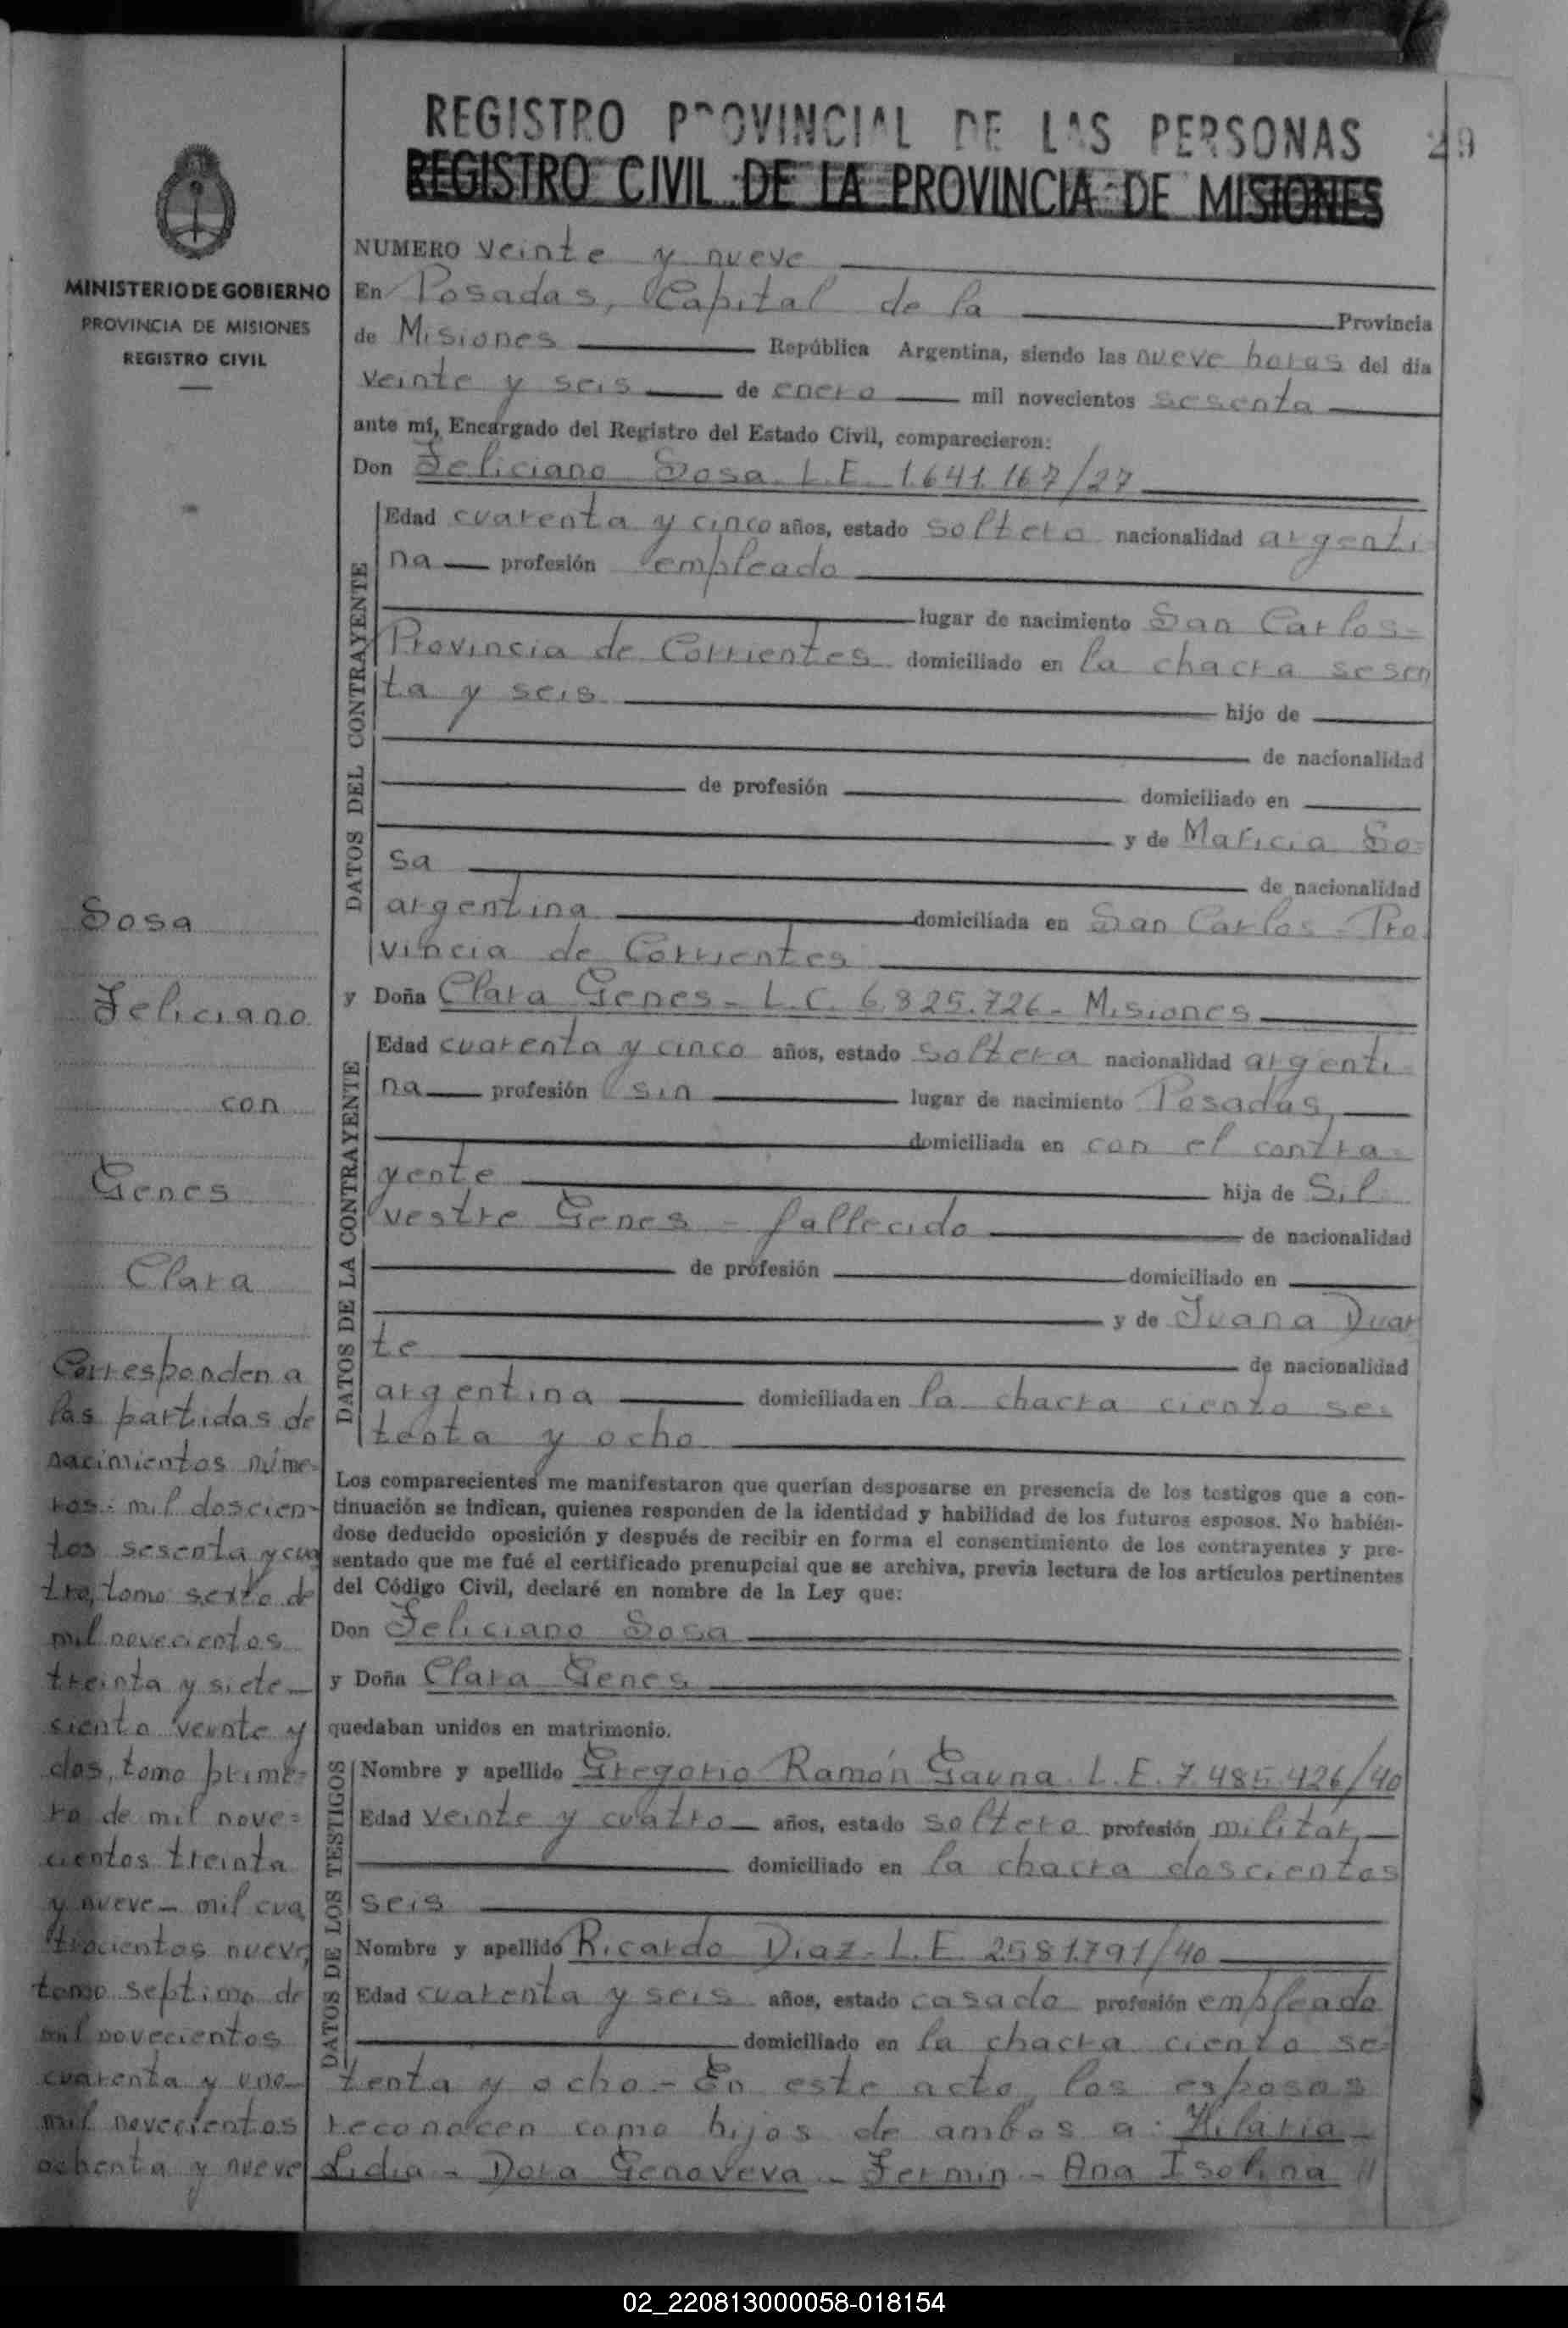 REGISTRO PROVINCIAL DE LAS PERSONAS
29
REGISTRO CIVIL DE LA PROVINCIA DE MISIONES
MINISTERIO DE GOBIERNO
PROVINCIA DE MISIONES
REGISTRO CIVIL
NUMERO veinte y nueve
En Posadas, Capital de la Provincia
de Misiones República Argentina, siendo las nueve horas del día
veinte y seis de enero mil novecientos sesenta
ante mí, Encargado del Registro del Estado Civil, comparecieron:
Don Feliciano Sosa. L.E. 1.641.167/27
DATOS DEL CONTRAYENTE
Edad cuarenta y cinco años, estado soltero nacionalidad argenti-
na profesión empleado
lugar de nacimiento San Carlos-
Provincia de Corrientes domiciliado en la chacra sesen
ta y seis hijo de
de nacionalidad
de profesión domiciliado en
y de Maricia So=
sa de nacionalidad
argentina domiciliada en San Carlos - Pro
vincia de Corrientes
y Doña Clara Genes - L.C. 6.825.726 - Misiones
DATOS DE LA CONTRAYENTE
Edad cuarenta y cinco años, estado soltera nacionalidad argenti-
na profesión sin lugar de nacimiento Posadas,
domiciliada en con el contra=
yente hija de Sil
vestre Genes - fallecido de nacionalidad
de profesión domiciliado en
y de Juana Duar
te de nacionalidad
argentina domiciliada en la chacra ciento se
tenta y ocho
Los comparecientes me manifestaron que querían desposarse en presencia de los testigos que a con-
tinuación se indican, quienes responden de la identidad y habilidad de los futuros esposos. No habién-
dose deducido oposición y después de recibir en forma el consentimiento de los contrayentes y pre-
sentado que me fué el certificado prenupcial que se archiva, previa lectura de los artículos pertinentes
del Código Civil, declaré en nombre de la Ley que:
Don Feliciano Sosa
y Doña Clara Genes
quedaban unidos en matrimonio.
DATOS DE LOS TESTIGOS
Nombre y apellido Gregorio Ramón Gauna. L.E. 7.485.426/40
Edad veinte y cuatro años, estado soltero profesión militar,
domiciliado en la chacra doscientos
seis
Nombre y apellido Ricardo Diaz - L.E. 2.581.791/40
Edad cuarenta y seis años, estado casado profesión empleado
domiciliado en la chacra ciento se=
tenta y ocho.- En este acto, los esposos
reconocen como hijos de ambos a: Hilaria -
Lidia - Dora Genoveva - Fermin - Ana Isolina //
Sosa
Feliciano
con
Genes
Clara
Corresponden a
las partidas de
nacimientos núme=
ros: mil doscien-
tos sesenta y cua
tro, tomo sexto de
mil novecientos
treinta y siete -
ciento veinte y
dos, tomo prime=
ro de mil nove=
cientos treinta
y nueve - mil cua
trocientos nueve,
tomo septimo de
mil novecientos
cuarenta y uno -
mil novecientos
ochenta y nueve
02_220813000058-018154